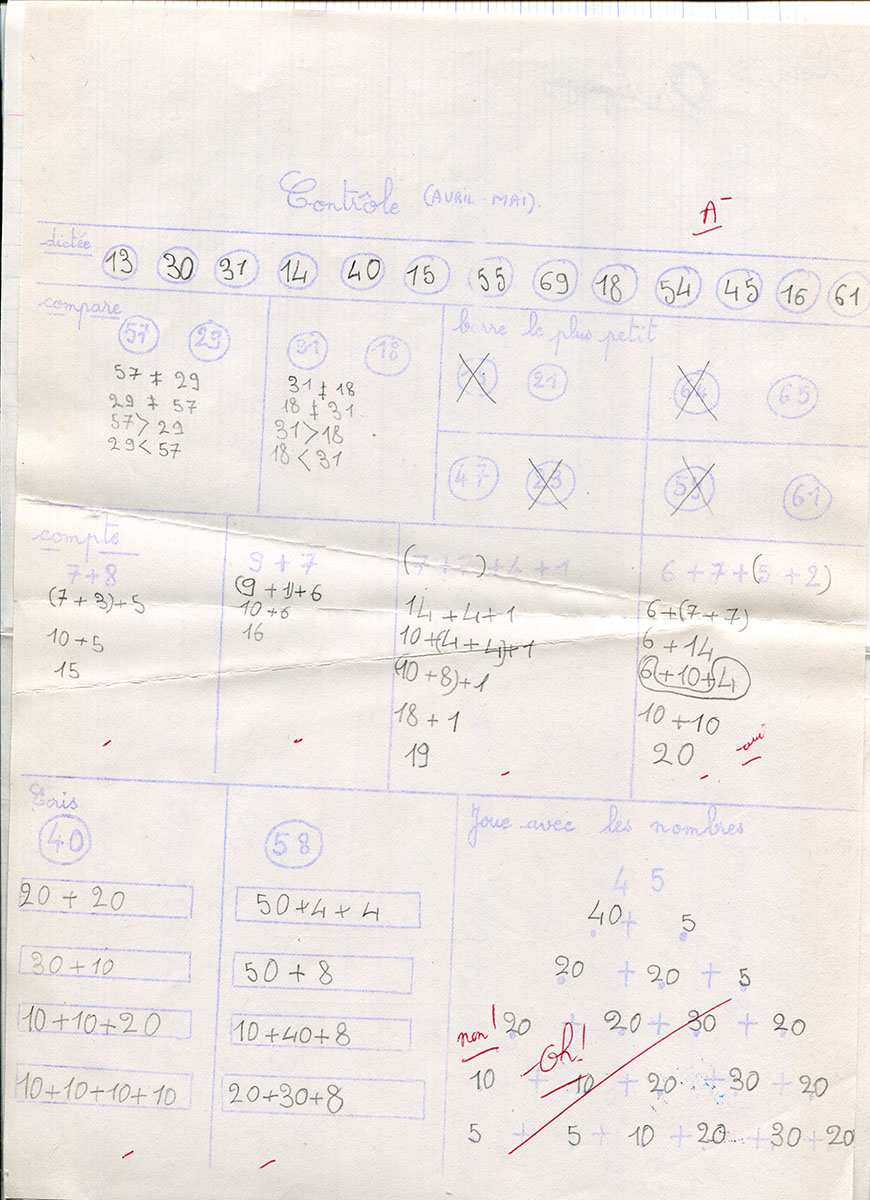 Contrôle (AVRIL-MAI).
A-
dictée
13 30 31 14 40 15 55 69 18 54 45 16 61
compare
57 29
57 ‡ 29
29 ‡ 57
57 > 29
29 < 57
31 18
31 ‡ 18
18 ‡ 31
31 > 18
18 < 31
barre le plus petit
21
64 65
47 23
59 61
compte
7+8
(7+3)+5
10+5
15
9+7
(9+1)+6
10+6
16
(7+7)+4+1
14+4+1
10+(4+4)+1
(10+8)+1
18+1
19
6+7+(5+2)
6+(7+7)
6+14
6+10+4
10+10
20
oui
Ecris
40
20+20
30+10
10+10+20
10+10+10+10
58
50+4+4
50+8
10+40+8
20+30+8
Joue avec les nombres
45
40+5
20+20+5
non! 20+20+30+20
oh!
10+10+20+30+20
5+5+10+20+30+20